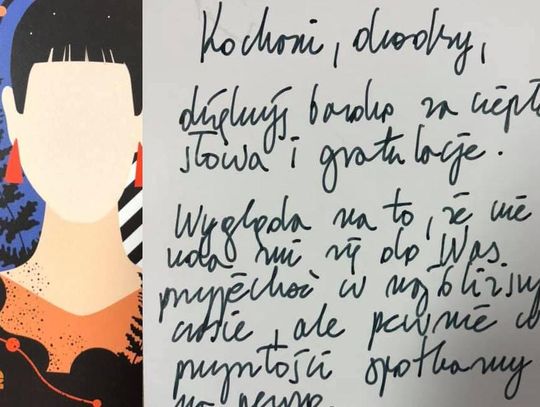 Kochani, drodzy,
dziękuję bardzo za ciepłe
słowa i gratulacje.
Wygląda na to, że nie
uda mi się do Was
przyjechać w najbliższy
czasie, ale pewnie w
przyszłości spotkamy
na pewno.